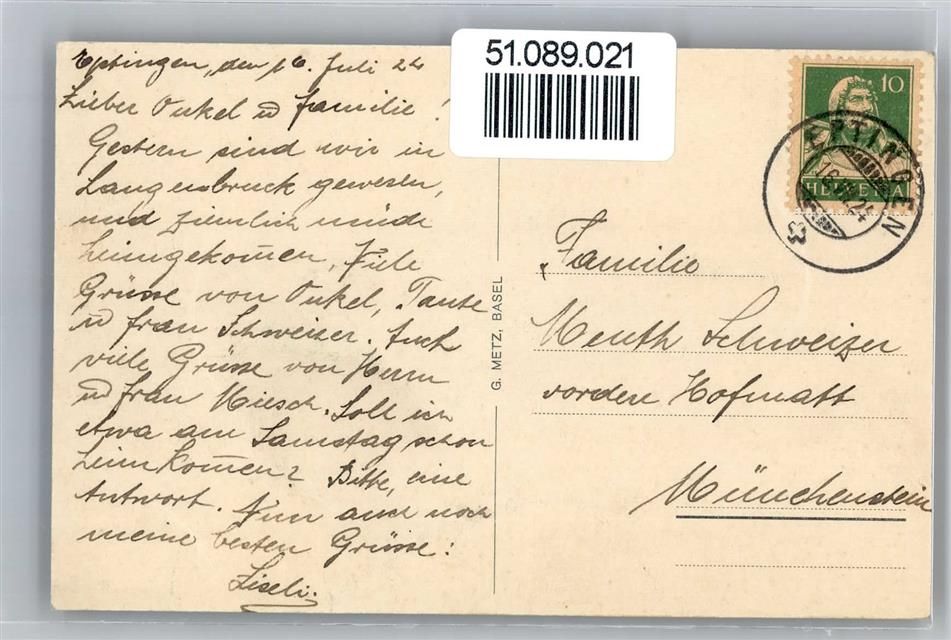 51.089.021
Eptingen, den 16. Juli 24
Lieber Onkel u Familie!
Gestern sind wir in
Langenbruck gewesen,
und ziemlich müde
heimgekom̅en, Viele
Grüsse von Onkel, Tante
u frau Schweizer. Auch
viele Grüsse von Herrn
u frau Miesch. Soll ich
etwa am Samstag schon
heim kom̅en? Bitte, eine
Antwort. Nun auch noch
meine besten Grüsse:
Liseli.
G. METZ, BASEL
10
HELVETIA
EPTINGEN
16. 24
Familie
Menth Schweizer
vordere Hofmatt
Münchenstein